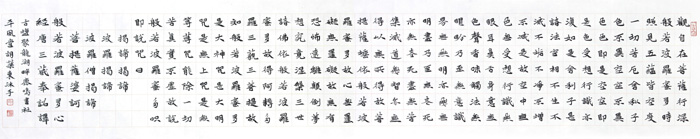 觀自在菩薩行深
般若波羅蜜多時
照見五蘊皆空度
一切苦厄舍利子
色不異空空不異
色色即是空空即
是色受想行識亦
復如是舍利子是
諸法空相不生不
滅不垢不淨不增
不減是故空中無
色無受想行識無
眼耳鼻舌身意無
色聲香味觸法無
眼界乃至無意識
界無無明亦無無
明盡乃至無老死
亦無老死盡無苦
集滅道無智亦無
得以無所得故菩
提薩埵依般若波
羅蜜多故心無罣
礙無罣礙故無有
恐怖遠離顛倒夢
想究竟涅槃三世
諸佛依般若波羅
蜜多故得阿耨多
羅三藐三菩提故
知般若波羅蜜多
是大神咒是大明
咒是無上咒是無
等等咒能除一切
苦真實不虛故說
般若波羅蜜多咒
即說咒曰
揭諦揭諦
波羅揭諦
波羅僧揭諦
般若波羅蜜多心
經唐三藏奉詔譯